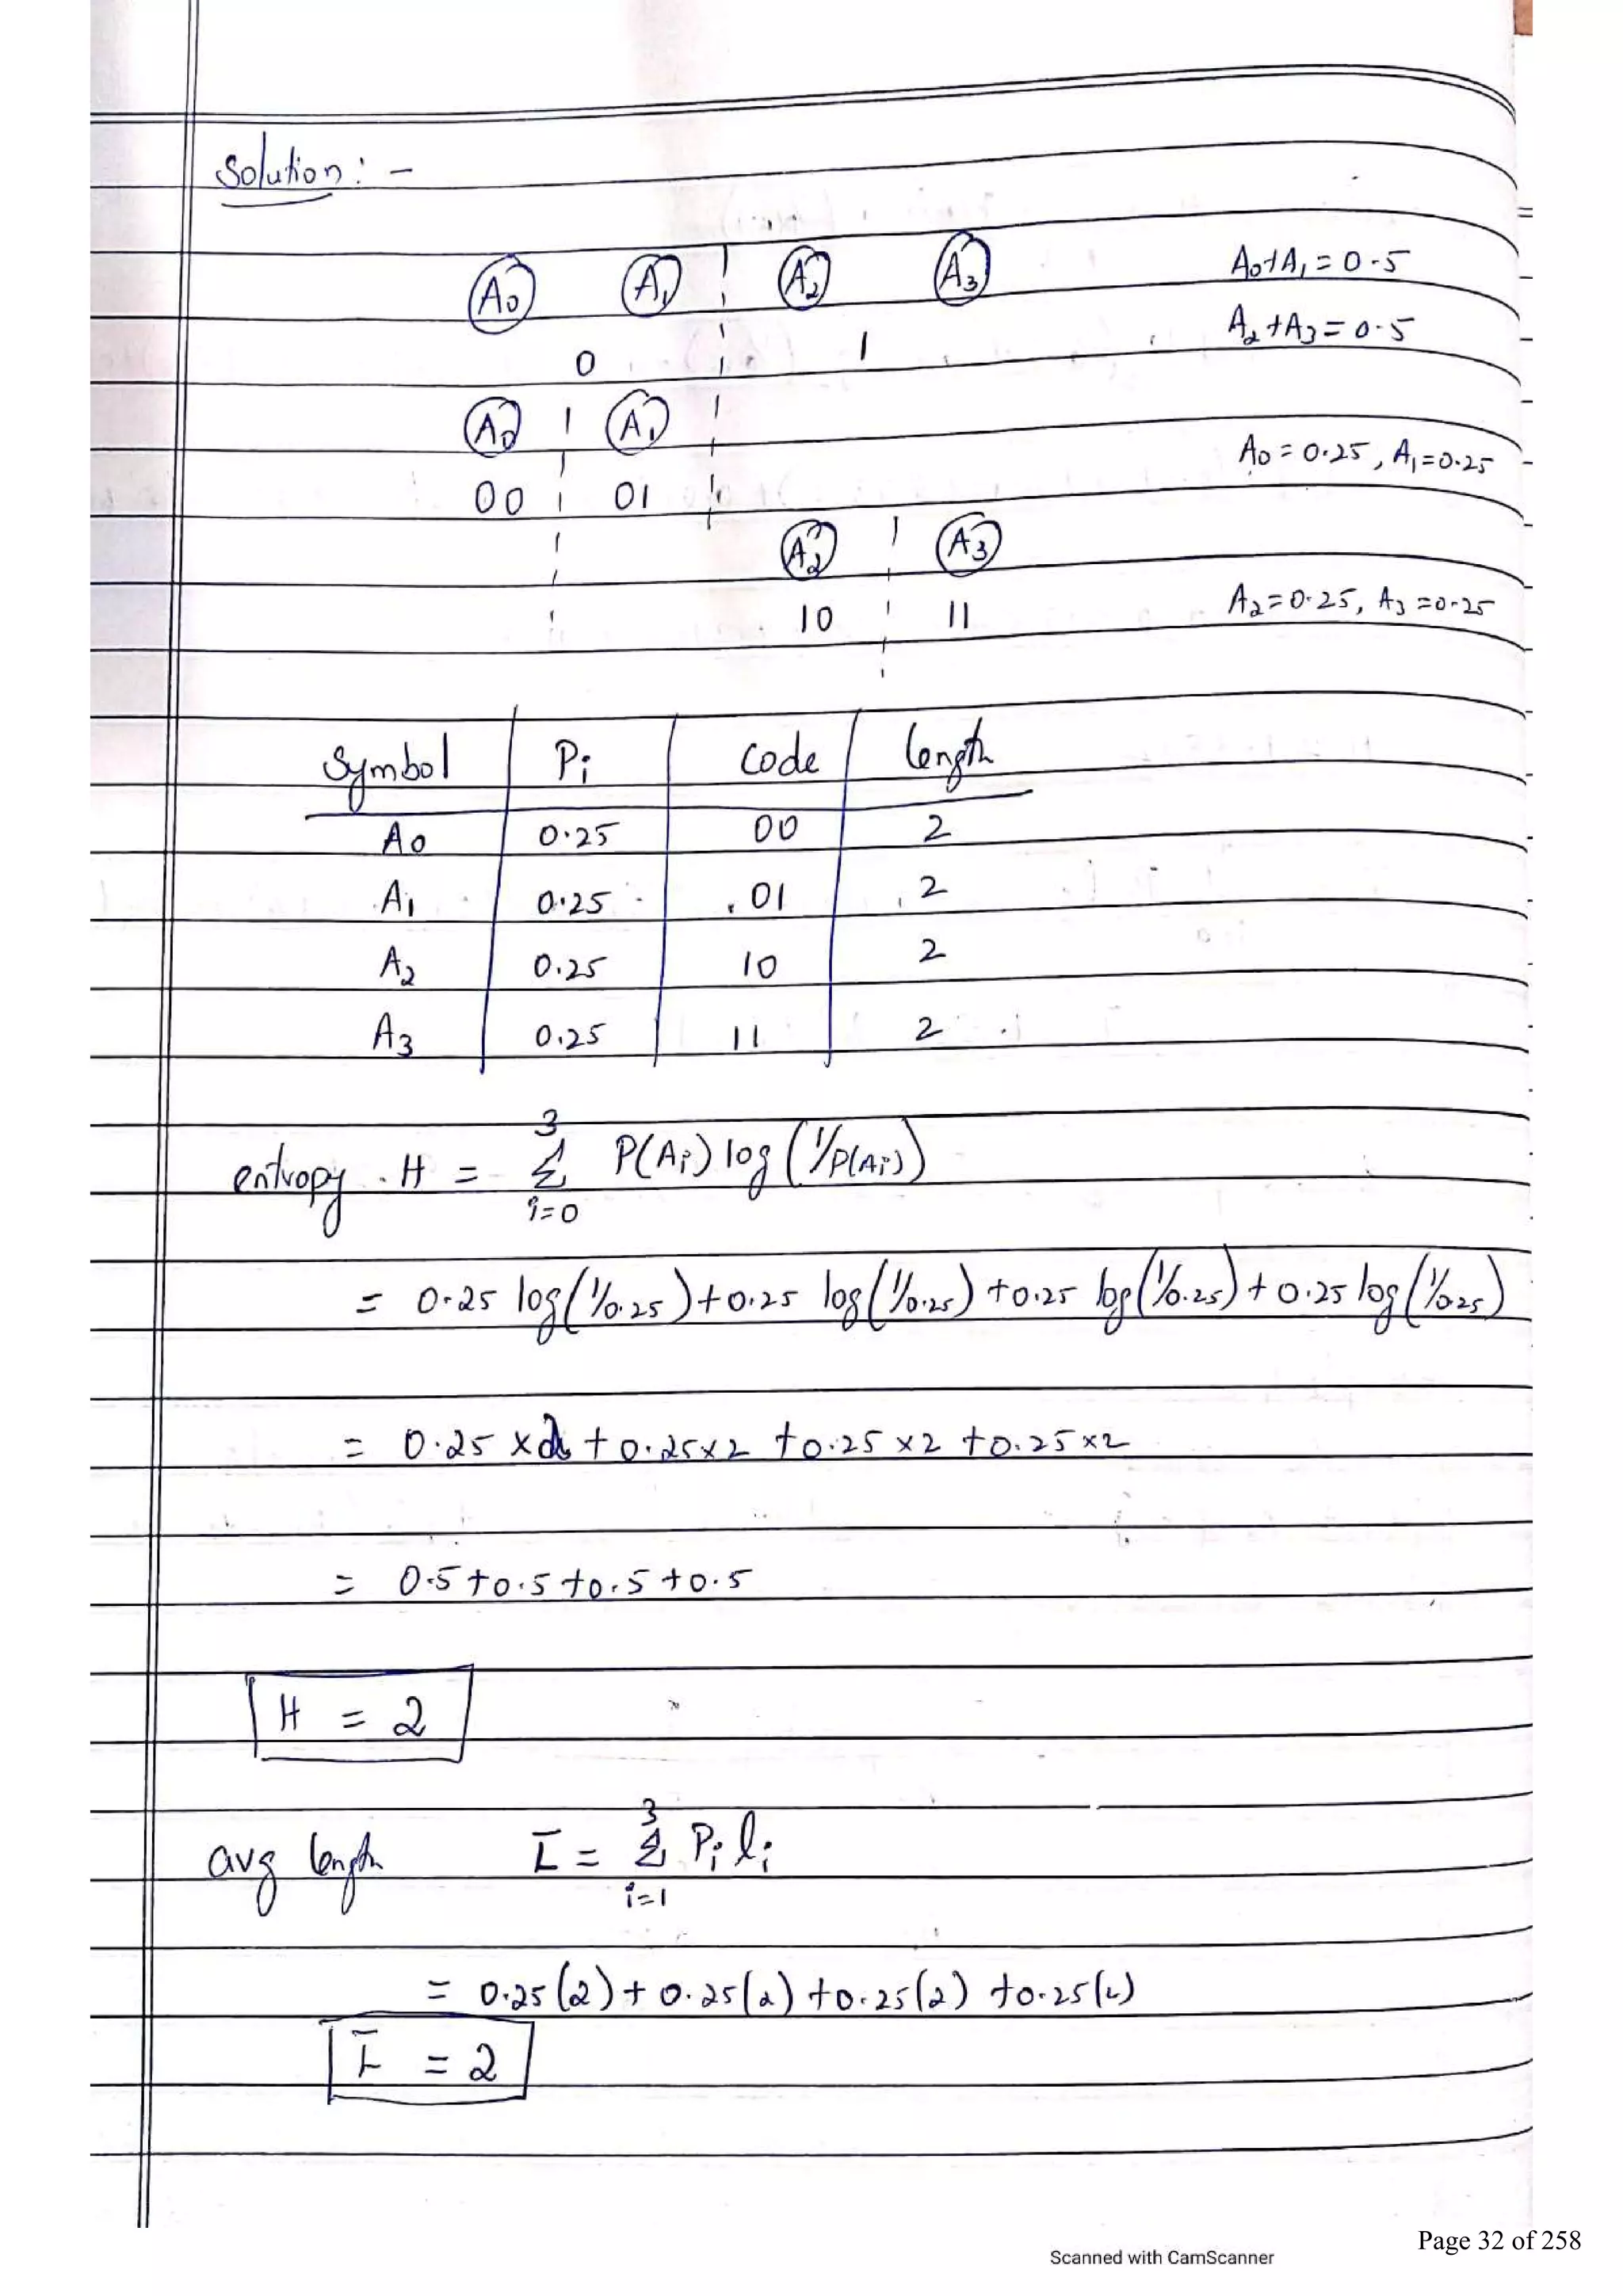 Solution : -
A0 A1 A2 A3 A0+A1 = 0.5
A2+A3 = 0.5
0 1
A0 A1
A0 = 0.25, A1=0.25
00 01
A2 A3
A2=0.25, A3=0.25
10 11
Symbol Pi Code length
A0 0.25 00 2
A1 0.25 01 2
A2 0.25 10 2
A3 0.25 11 2
entropy . H = 3 Σ i=0 P(Ai) log (1/P(Ai))
= 0.25 log(1/0.25)+0.25 log(1/0.25) +0.25 log(1/0.25)+ 0.25 log(1/0.25)
= 0.25 x2 + 0.25x2 +0.25 x2 +0.25x2
= 0.5+0.5+0.5+0.5
H = 2
avg length L̄ = 3 Σ i=1 Pi li
= 0.25(2)+ 0.25(2) +0.25(2) +0.25(2)
L̄ = 2
Page 32 of 258
Scanned with CamScanner